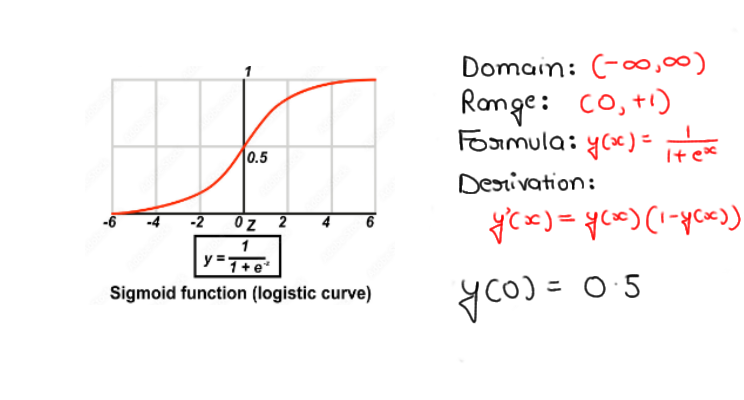 1
0.5
-6 -4 -2 0 Z 2 4 6
y = 1 / 1 + e^-z
Sigmoid function (logistic curve)
Domain: (-∞,∞)
Range: (0,+1)
Formula: y(x) = 1 / 1+ e^x
Derivation:
y'(x) = y(x) (1-y(x))
y(0) = 0.5